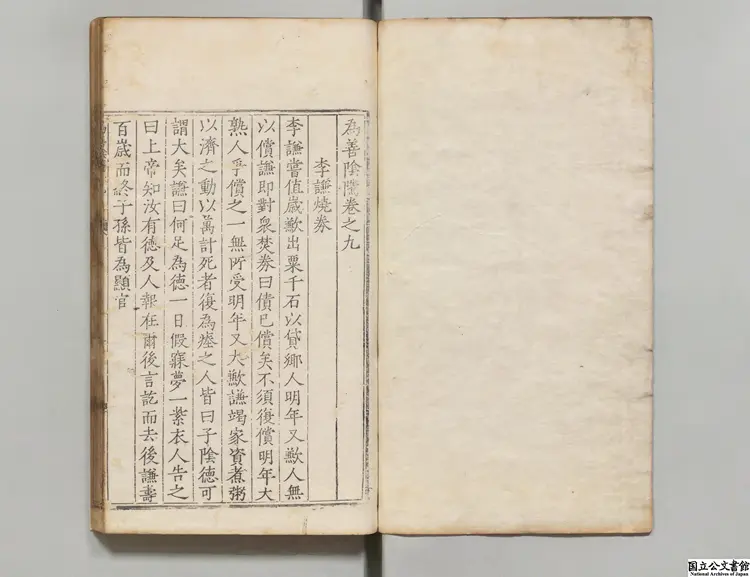 為善陰騭卷之九
李謙燒券
李謙嘗值歲歉出粟千石以貸鄉人明年又歉人無
以償謙即對眾焚券曰債已償矣不須復償明年大
熟人爭償之一無所受明年又大歉謙竭家資煮粥
以濟之動以萬計死者復為瘞之人皆曰子陰德可
謂大矣謙曰何足為德一日假寐夢一紫衣人告之
曰上帝知汝有德及人報在爾後言訖而去後謙壽
百歲而終子孫皆為顯官
国立公文書館
National Archives of Japan